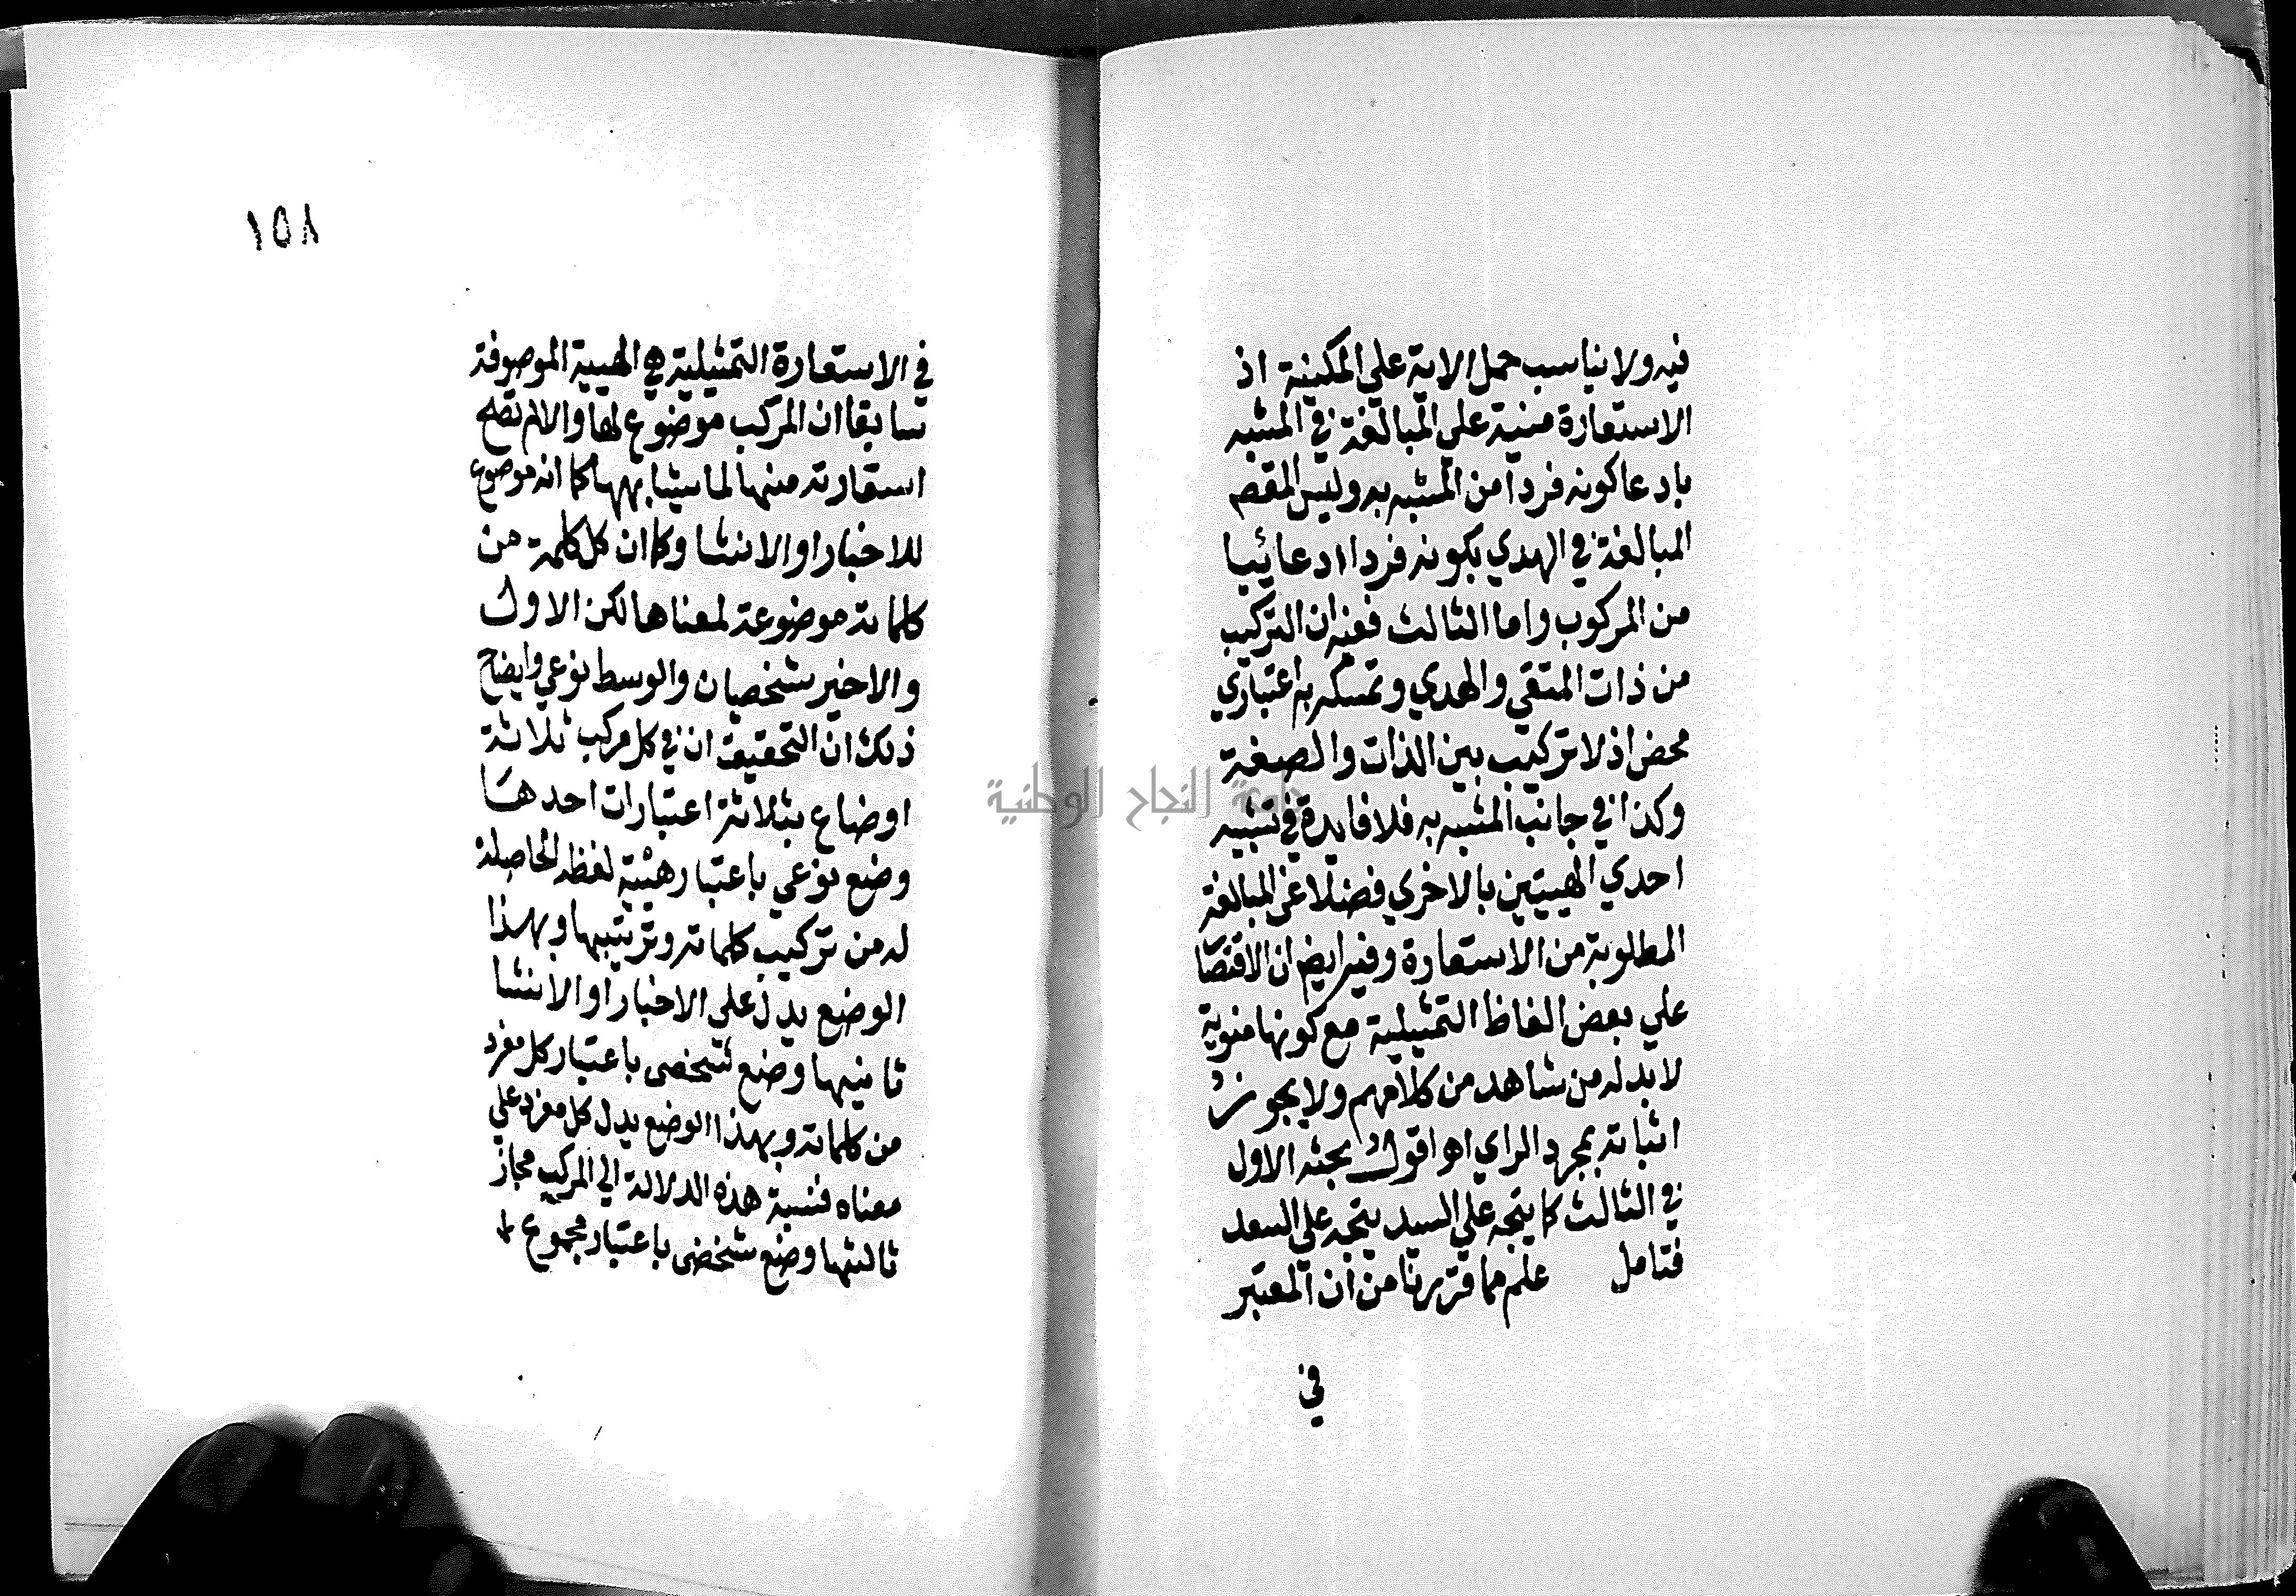 فيه ولا يناسب حمل الاية علي المكينة اذ
الاستعارة مبنية علي المبالغة في المشبه
بادعا كونه فردا من المشبه به وليس المقصـ
المبالغة في الهدي بكونه فردا ادعائيا
من المركوب واما الثالث ففيه ان التركيب
من ذات المتقي والهدي وتمسكه به اعتباري
محض اذ لا تركيب بين الذات والصفة
وكذا في جانب المشبه به فلا فايدة في تشبيه
احدي الهييتين بالاخري فضلا عن المبالغة
المطلوبة من الاستعارة وفيه ايض ان الاقتصا
علي بعض الفاظ التمثيلية مع كونها منوية
لا بد له من شاهد من كلامهم ولا يجوز
اثباته بمجرد الراي اهـ اقول بحثه الاول
في الثالث كما يتجه علي السيد يتجه علي السعد
فتامل علم مما قررنا من ان المعتبر
في
١٥٨
في الاستعارة التمثيلية هي الهيية الموصوفة
سابقا ان المركب موضوع لها والا لم تصح
استعارته منها لما يشابهها كما انه موضوع
للاخبار او الانشا وكما ان كل كلمة من
كلماته موضوعة لمعناها لكن الاول
والاخير شخصيان والوسط نوعي وايضاح
ذلك ان التحقيق ان في كل مركب ثلاثة
اوضاع بثلاثة اعتبارات احدها
وضع نوعي باعتبار هيئة لفظه الحاصلة
له من تركيب كلماته وترتيبها وبهذا
الوضع يدل علي الاخبار او الانشا
ثانيها وضع شخصي باعتبار كل مفرد
من كلماته وبهذا الوضع يدل كل مفرد علي
معناه فنسبة هذه الدلالة الي المركب مجاز
ثالثها وضع شخصي باعتبار مجموع
جامعة النجاح الوطنية